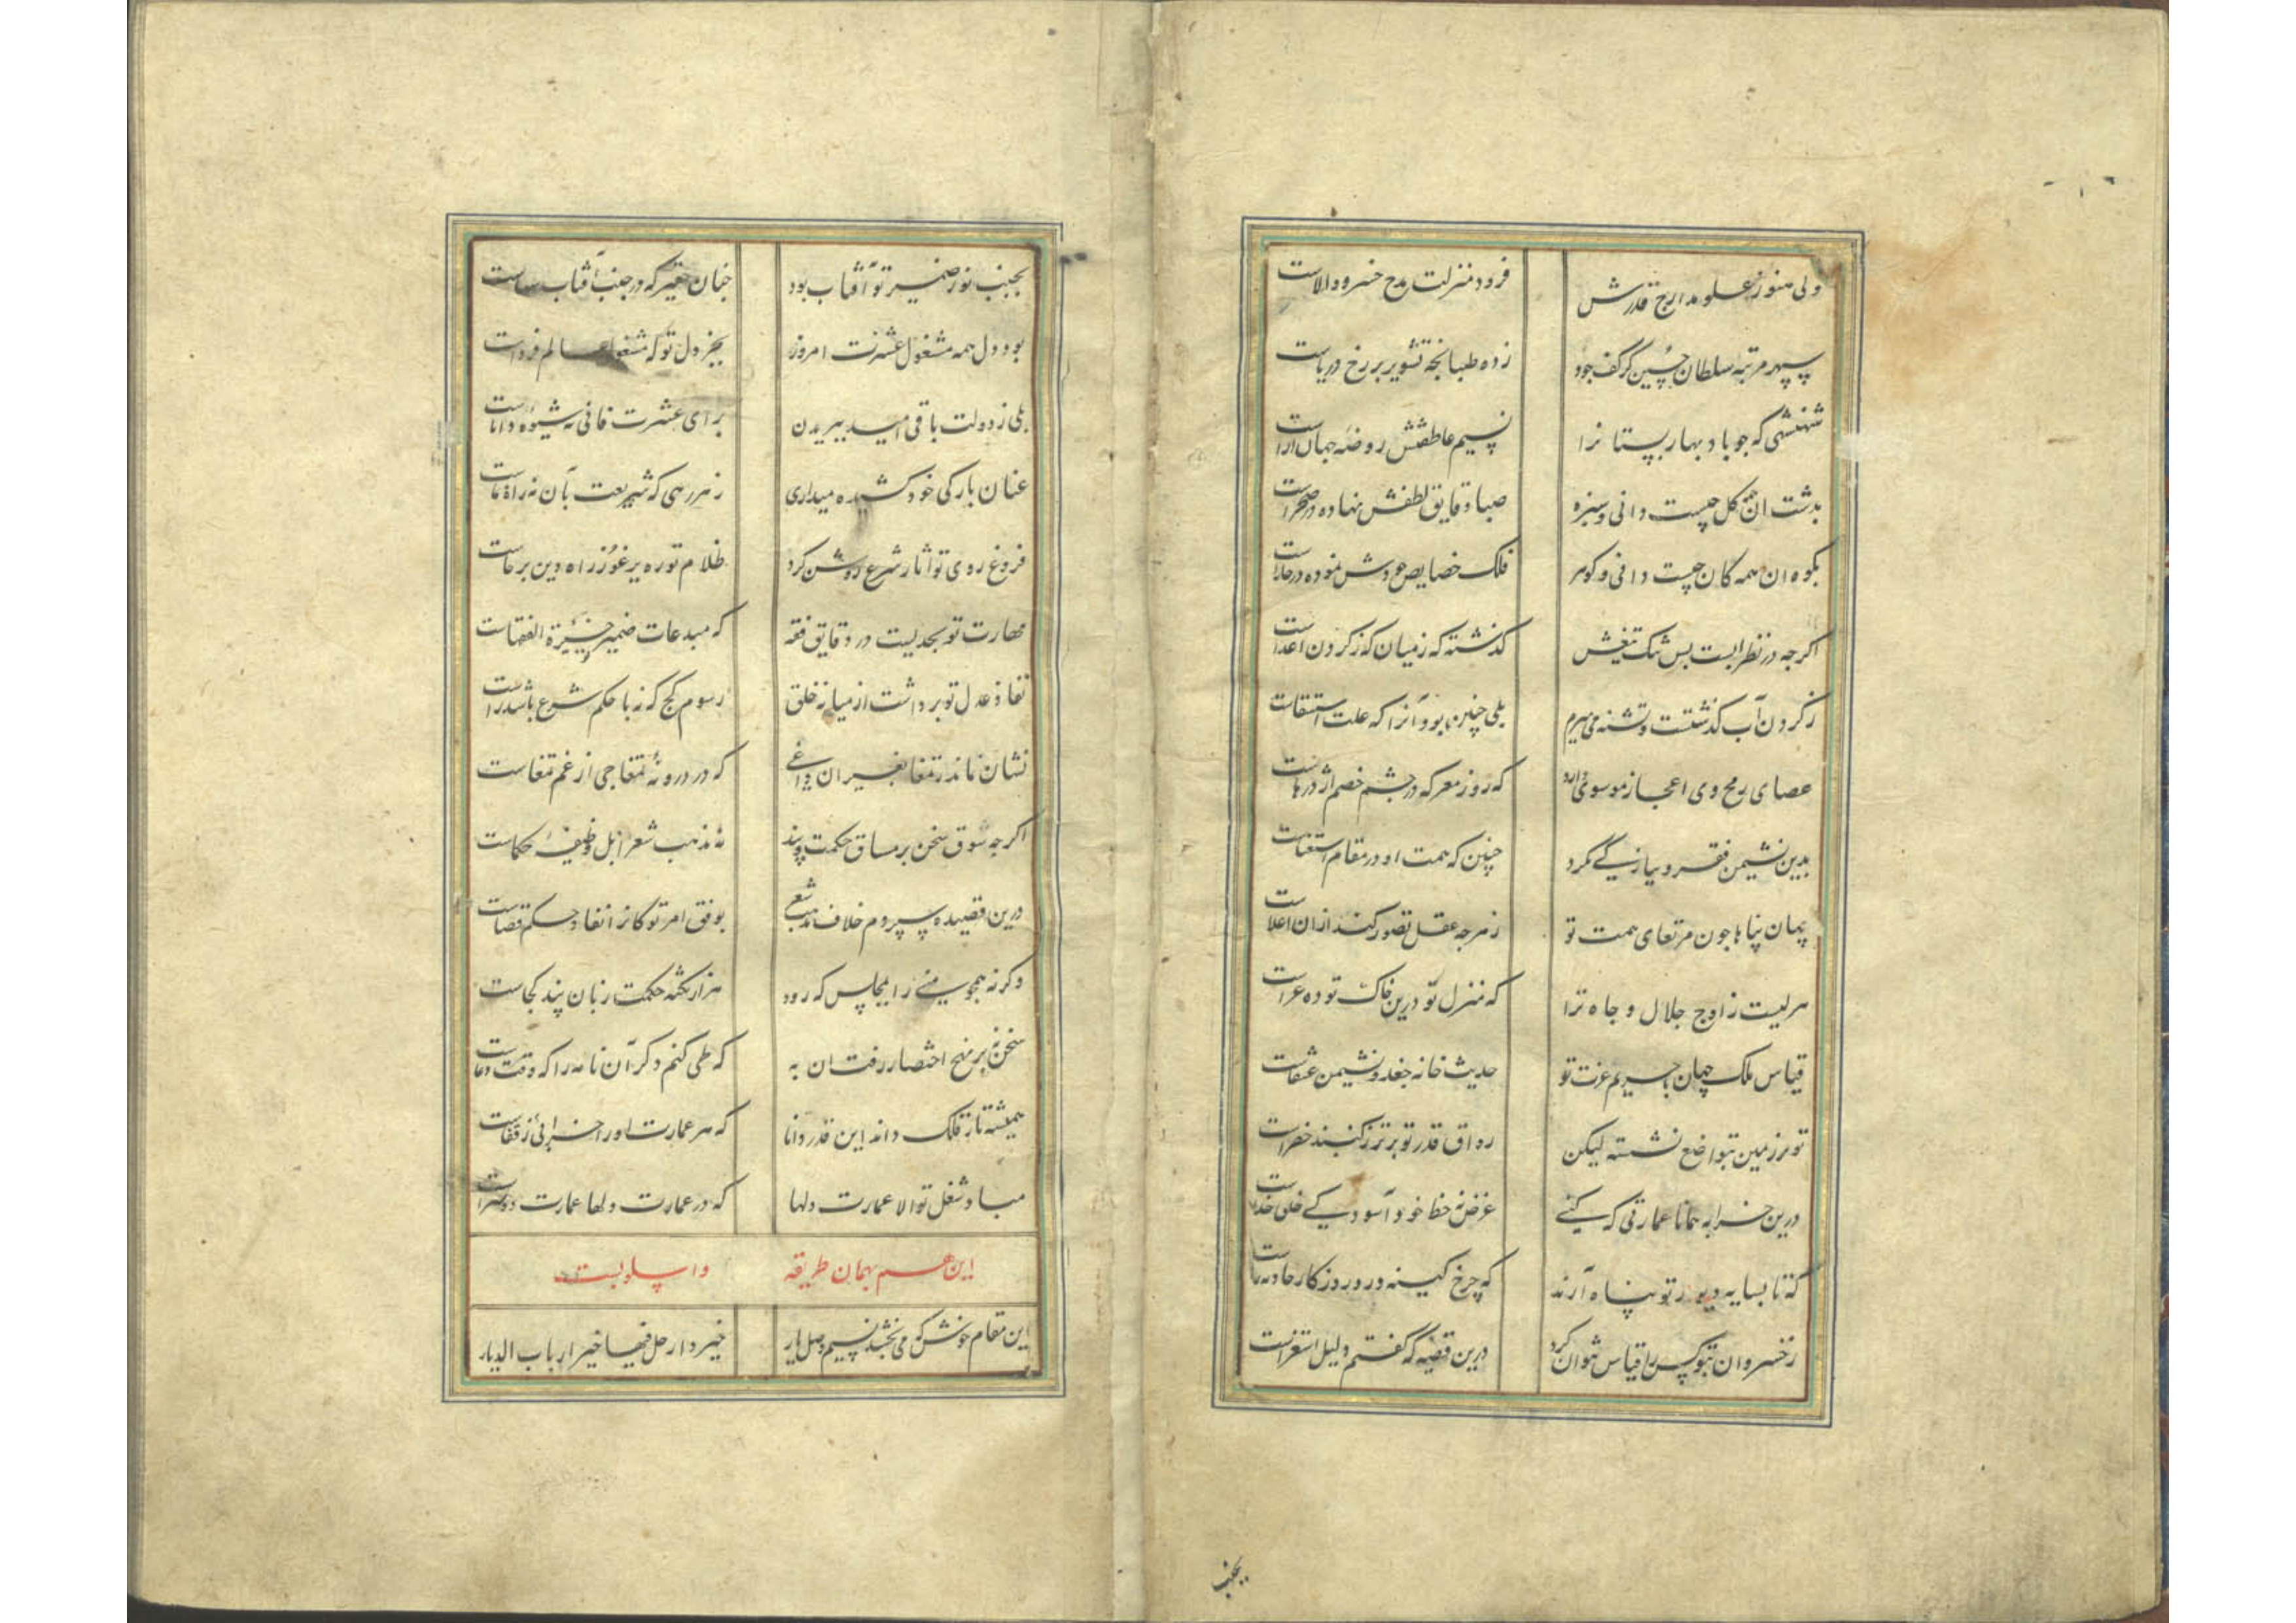 ولی هنوز علو مدارج قدرش فرود منزلت مدح خسرو والاست
سپهر مرتبه سلطان حسین کز کف جود زده طبانجهٔ تشویر بر رخ دریاست
شهنشهی که جو باد بهار بستانرا نسیم عاطفتش روضهٔ جهان اراست
بدشت ان کل جیست دانی و سبزه صبا دقایق لطفش نهاده در صحراست
بکوه ان همه کان چیست دانی و کوهر فلک خصایص جودش نموده در خاراست
اکرجه در نظر ابست بس تنک تیغش کذشته که زمیان که زکردن اعداست
زکردن آب کذشتست و تشنه می میرم بلی چنین بود آنرا که علت استسقاست
عصای رمح وی اعجاز موسوی دارد که روز معرکه در جشم خصم اژدرهاست
بدین نشیمن فقر و نیاز کی نکرد چنین که همت او در مقام استغناست
جهان پناها جون مرتقای همت تو زهرجه عقل تصور کند ازان اعلاست
هر لیست ز اوج جلال و جاه ترا که منزل تو درین خاک توده غراست
قیاس ملک جهان با حریم عزت تو حدیث خانه جغد و نشیمن عنقاست
تو بر زمین بتواضع نشسته لیکن رواق قدر تو برتر ز کنبد خضراست
درین خرابه همانا عمارتی که کنی غرض نه حظ خود آسودکی خلق خداست
که تا بسایه دیوار تو پناه آرند که چرخ کینه ور و روزکار حادثه زاست
زخسروان بتو کس را قیاس نتوان کرد درین قضیه که کفتم دلیل استقراست
بجنب
بجنب نور ضمیر تو آفتاب بود جنان حقیر که در جنب آفتاب سهاست
بود دل همه مشغول عشرت امروز بجز دل تو که مشغول عالم فرداست
بلی ز دولت باقی امید ببریدن برای عشرت فانی نه شیوه داناست
عنان بارکی خود کشیده میداری زهر رهی که شریعت بآن نه راه نماست
فروغ روی تو آثار شرع روشن کرد ظلام توره برغو ز راه دین برخاست
مهارت تو بحدیست در دقایق فقه که مبدعات ضمیر خیرة الفقهاست
نفاذ عدل تو برداشت از میانه خلق رسوم کج که نه با حکم شرع باشد راست
نشان نماند ز تمغا بغیر ان داغی که در درونهٔ تمغاجی از غم تمغاست
اکرجه سوق سخن بر مساق حکمت و پند نه مذهب شعرا بل وظیفهٔ حکماست
درین قصیده سپردم خلاف مذهب شعر بوفق امر تو کانرا نفاذ حکم قضاست
وکرنه همجو منی را بمجلسی که رود هزار نکته حکمت زبان پند کجاست
سخن نه بر نهج اختصار رفت ان به که طی کنم دکر آن نامه را که وقت دعاست
همیشه تا ز فلک داند این قدر دانا که هر عمارت او را خرابی ز قفاست
مباد شغل تو الا عمارت دلها که در عمارت دلها عمارت دو سراست
این هم بهمان طریقه و اسلوبست
این مقام خوش که می بخشد نسیم وصل یار خیر دار حل فیها خیر ارباب الدیار